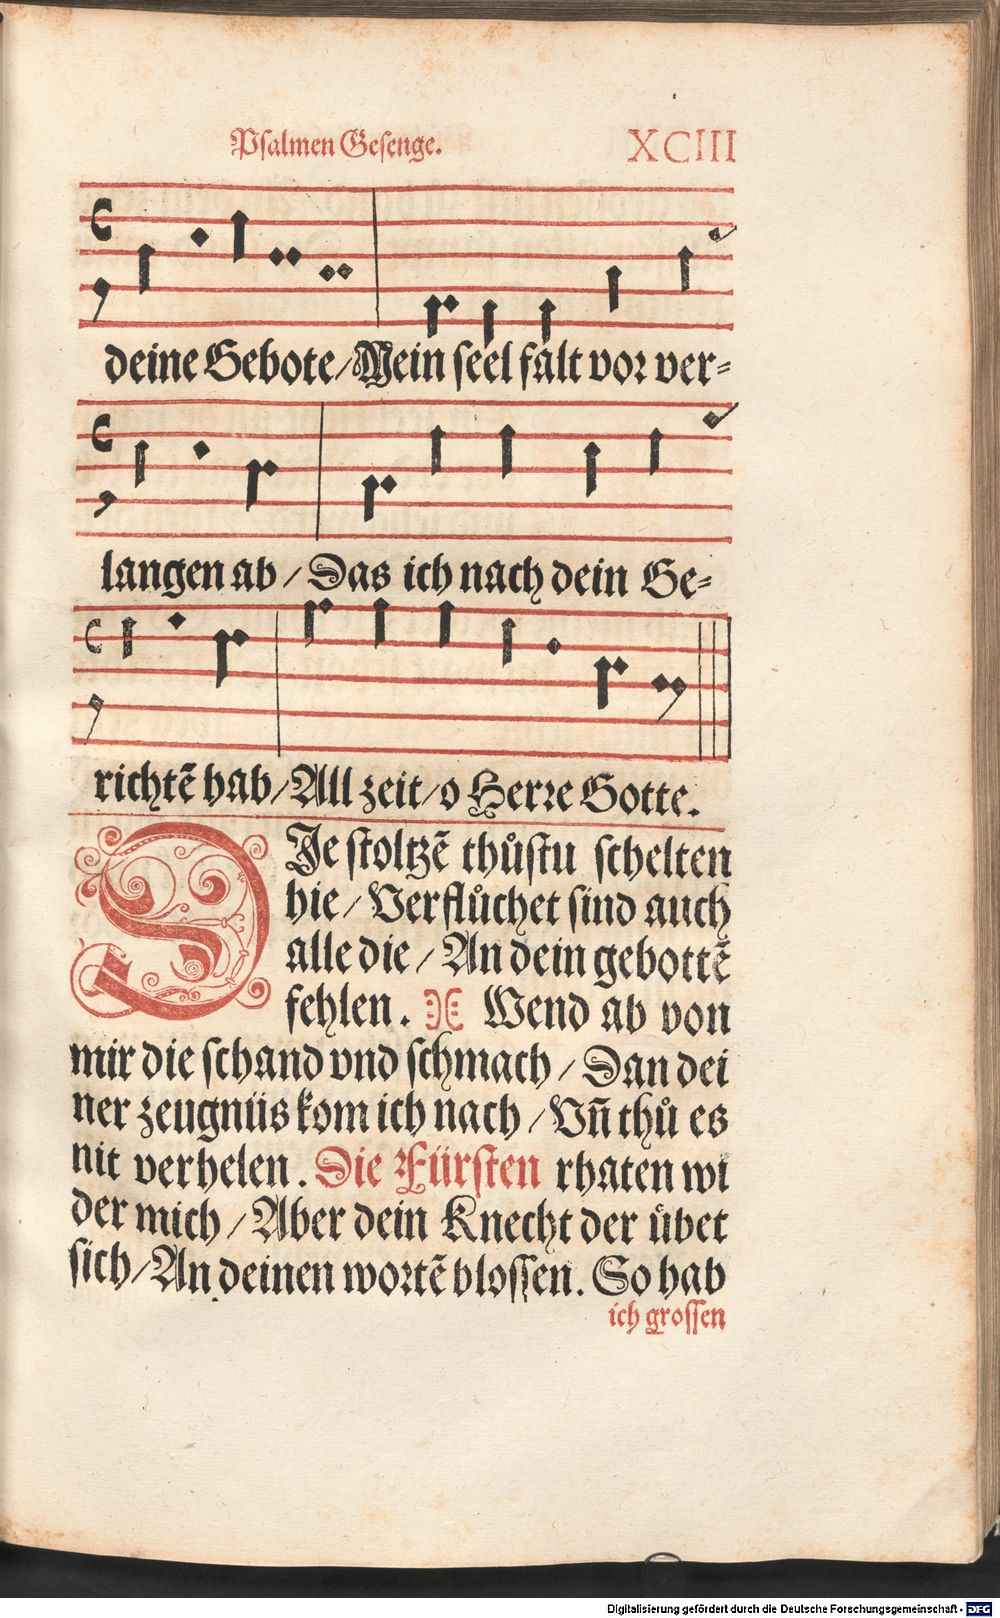 Psalmen Gesenge. XCIII
deine Gebote/Mein seel falt vor ver=
langen ab / Das ich nach dein Ge=
richtẽ hab/All zeit/o Herre Gotte.
DJe stoltzẽ thůstu schelten
hie/Verflůchet sind auch
alle die / An dein gebottẽ
fehlen. Wend ab von
mir die schand vnd schmach / Dan dei
ner zeugnüs kom ich nach /Vñ thů es
nit verhelen. Die Fürsten rhaten wi
der mich / Aber dein Knecht der übet
sich/An deinen wortẽ blossen. So hab
ich grossen
Digitalisierung gefördert durch die Deutsche Forschungsgemeinschaft - DFG